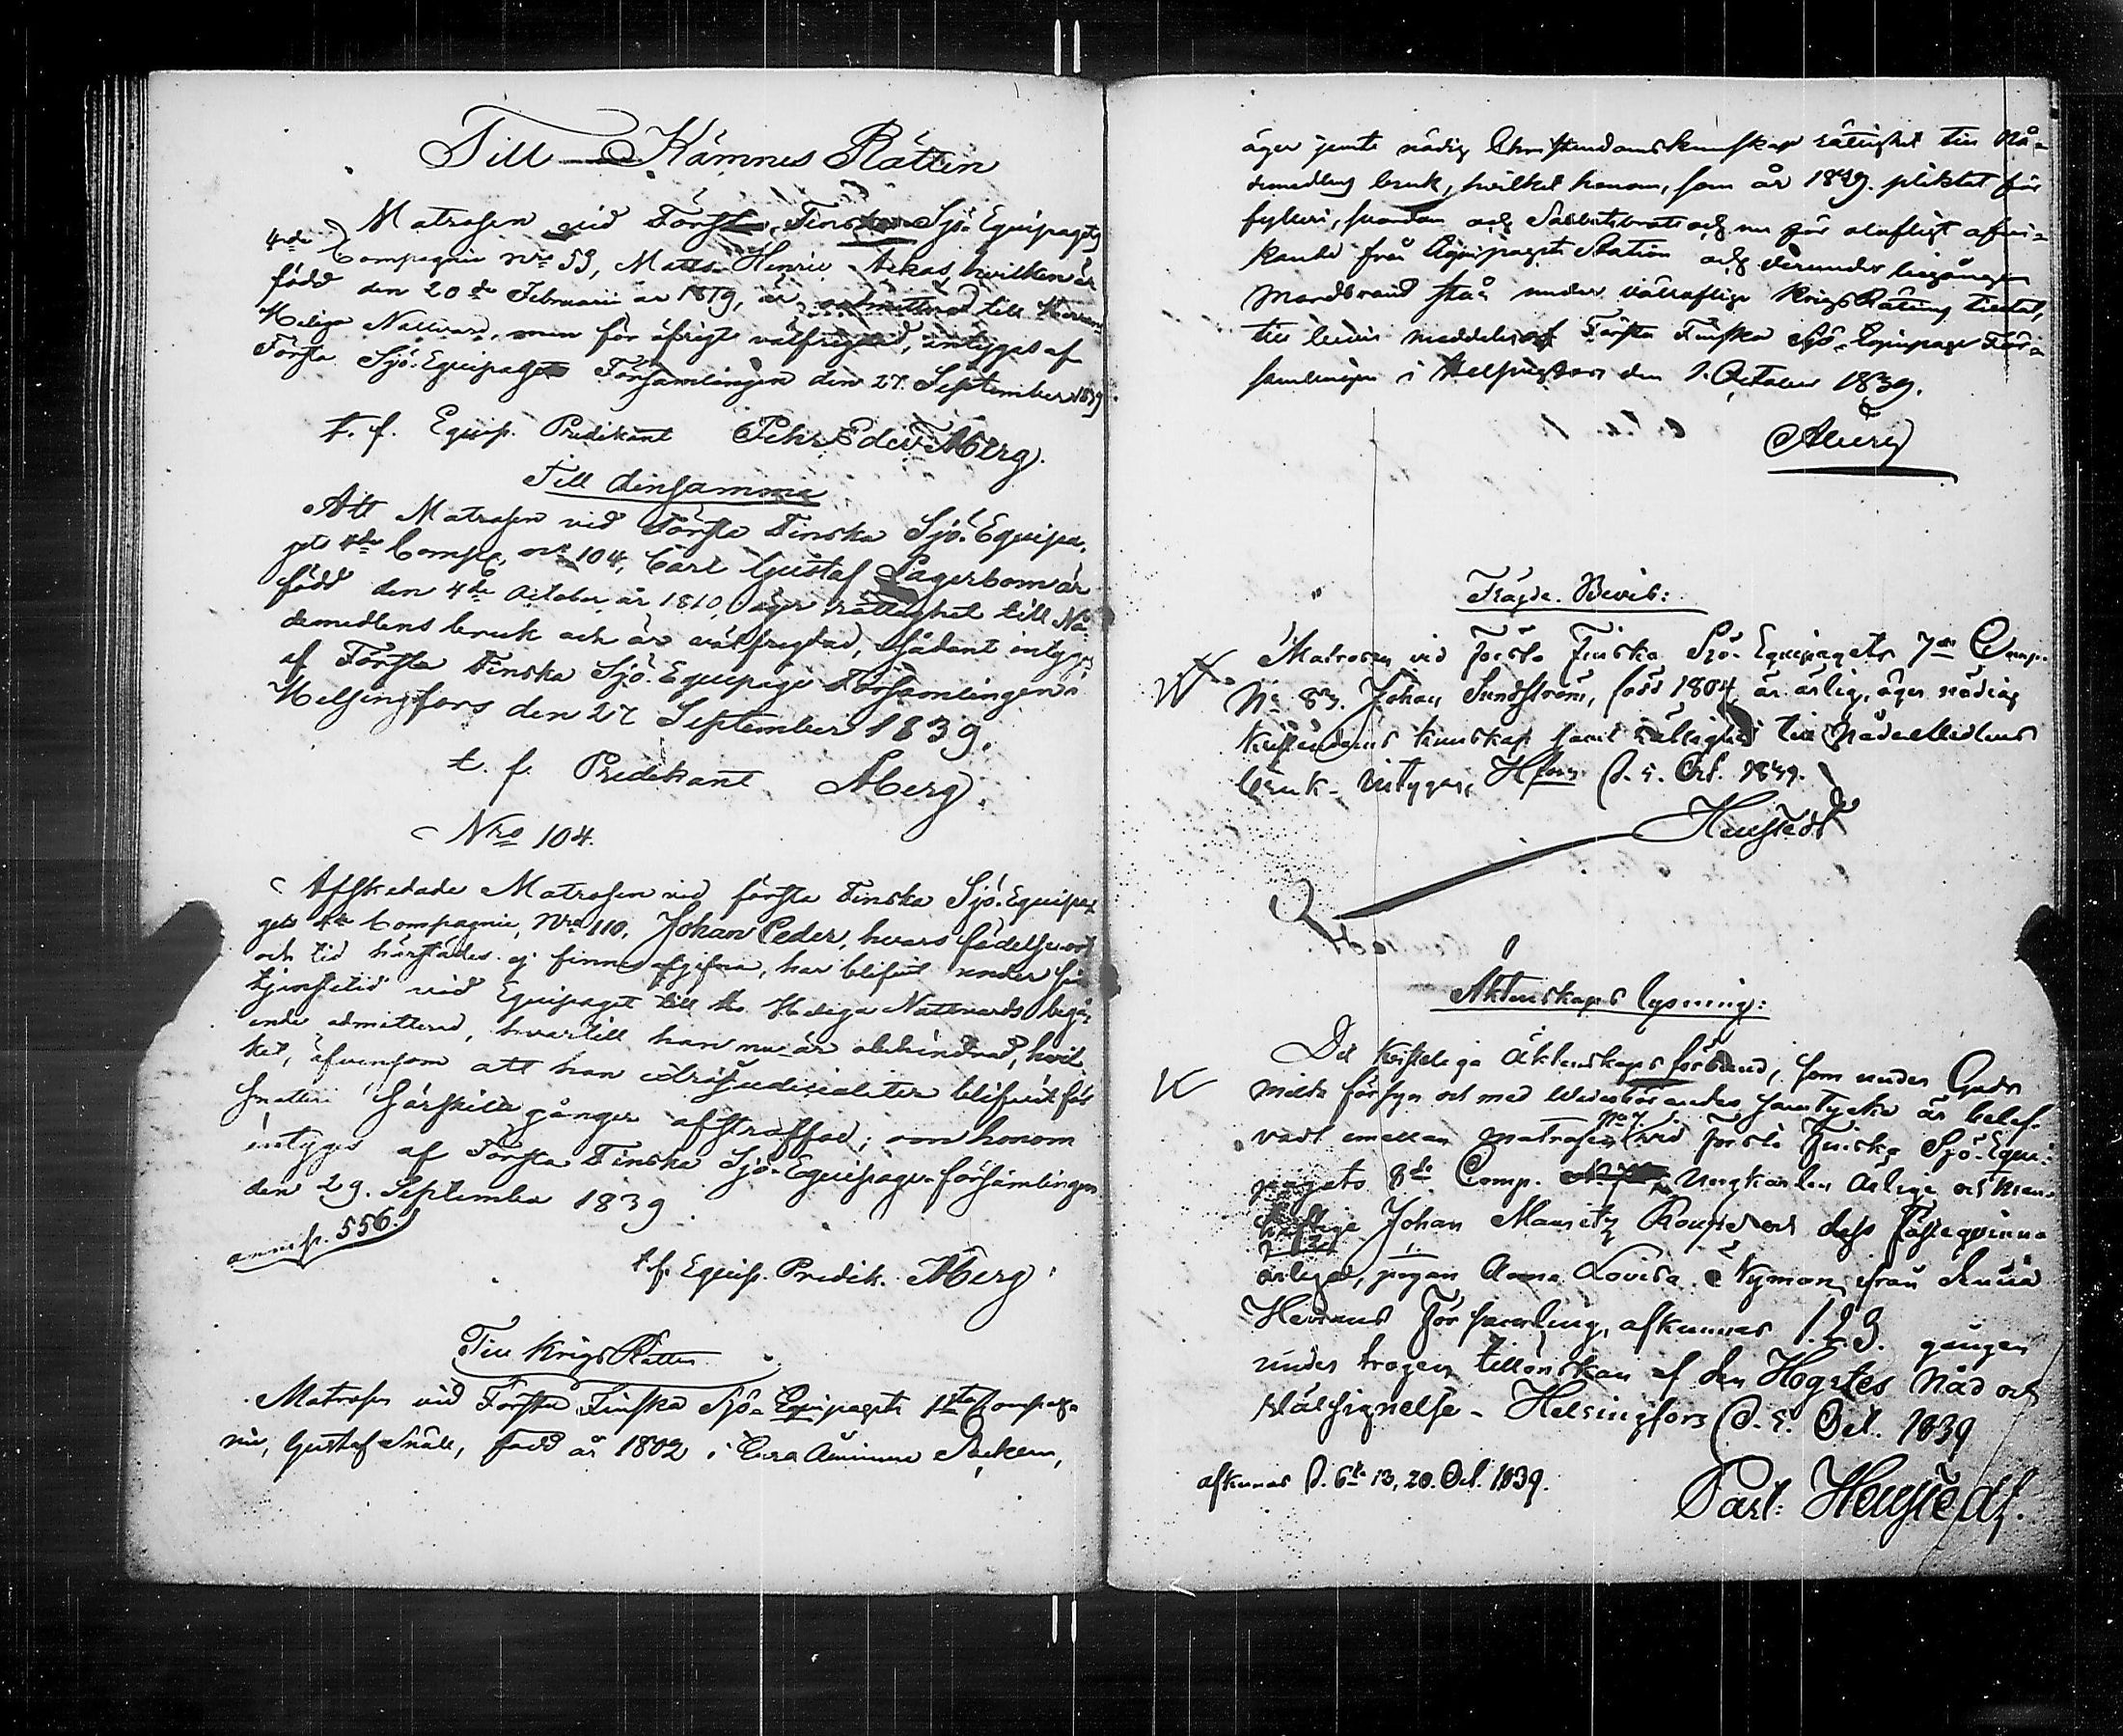 Till Kämners Rätten
Matrosen vid Första Finska Sjö-Equipagets
4de Compagnie Nro 53, Matts Henric Akas, hvilken är
född den 20de Februarii år 1819, är till Herrans
Heliga Nattvard, men för öfrigt välfrejdad, intygas af
Första Sjö-Equipages Församlingen den 27 September 1839.
t. f. Equip. Predikant Pehr Edv. Åberg.
Till densamma
Att Matrosen vid Första Finska Sjö-Equipa-
gets 4de Comp. Nro 104, Carl Gustaf Lagerbom är
född den 4de October år 1810, äger rättighet till Nå-
demedlens bruk och är välfrejdad, sådant intygas
af Första Finska Sjö-Equipage Församlingen i
Helsingfors den 27 September 1839.
t. f. Predikant Åberg.
Nro 104.
Afskedade Matrosen vid första Finska Sjö-Equipa-
gets 4de Compagnie, Nro 110, Johan Peder, hvars födelseort
och tid härstädes ej finnes afgifna, har blifvit under sin
tjenstetid vid Equipaget till Heliga Nattvards begå-
ende admitterad, hvartill han nu är obehindrad, hvil-
ket, äfvensom att han extrajudicialiter blifvit för
snatteri särskilda gånger afstraffad; om honom
intygas af Första Finska Sjö-Equipages-församlingen
den 29. September 1839
556.
t. f. Equip. Predik. Åberg.
Till Krigs Rätten
Matrosen vid Första Finska Sjö-Equipagets 1sta Compag-
nie, Gustaf Snäll, född år 1802 i Socken,
äger jemte nödig Christendomskunskap rättighet till Nå-
demedlens bruk, hvilket honom, som år 1839. pliktat för
fylleri, och Sabbatsbrott och nu för olofligt afvi-
kande från Equipagets Station och derunder
mordbrand står under vällofliga KrigsRättens tilltal,
till bevis meddelas af Första Finska Sjö-Equipage För-
samlingen i Helsingfors den 1. October 1839.
Åberg
Frägde-Bevis:
Matrosen vid Första Finska Sjö-Equipagets 7de Comp.
No 83. Johan Sundström, född 1804 är ärlig, äger nödig
Kristendoms kunskap samt rättighet till Nådemedlens
bruk – intygar, Hfors d. 5. Oct. 1839.
Henstedt
Äktenskaps lysning:
Det kristeliga Äktenskapsförbund, som under Guds
milda försyn och med Wederbörandes samtycke är belef-
vadt emellan Matrosen vid Första Finska Sjö-Equi-
pagets 8de Comp. Ungkarlen Ärlige och Man-
haftige Johan Mauritz och dess Fästeqvinna
ärliga, pigan Anna Lovisa Nyman från
Herrans Församling, afkunnas 1. 2. 3. gången
under trogen tillönskan af den Högstes Nåd och
Välsignelse – Helsingfors d. 5. Oct. 1839
Past: Henstedt.
afkunnas d. 6te 13, 20. Oct. 1839.